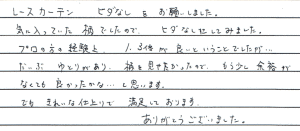 レースカーテン ヒダなし を お願いしました。
気に入っていた 柄でしたので、ヒダなしにしてみました。
プロの方の経験上、1.3倍が良いということでしたが…
だいぶ ゆとりがあり、柄を見せたかったので、もう少し余裕が
なくても良かったかな…と思います。
でも きれいな仕上りで 満足しております。
ありがとうございました。